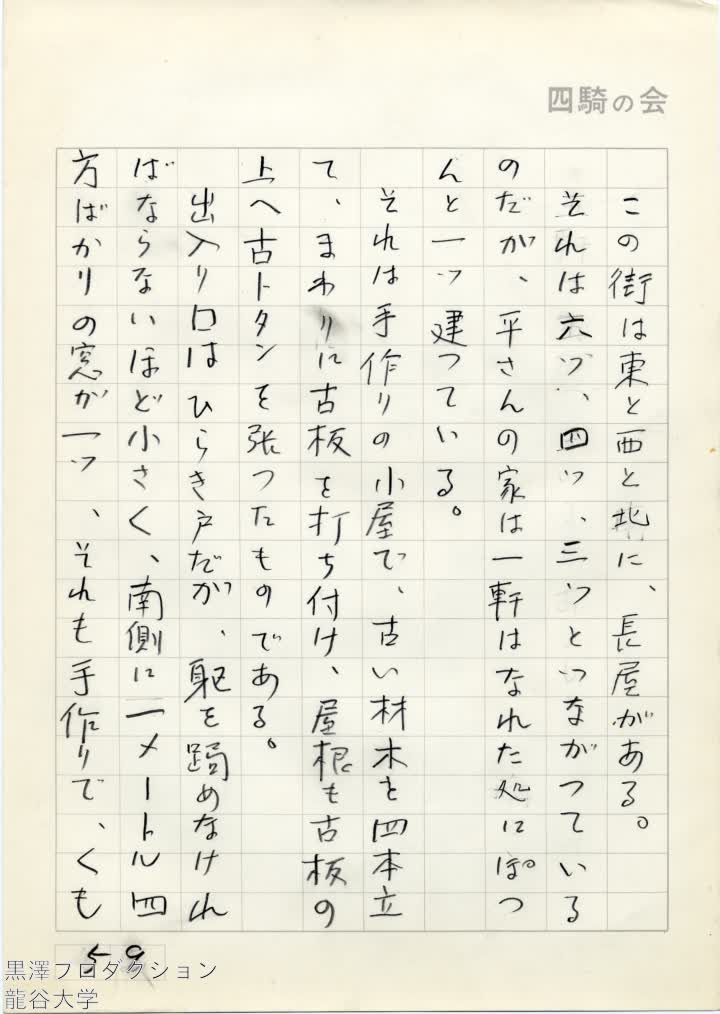 四騎の会
この街は東と西と北に、長屋がある。
それは六ツ、四ツ、三ツとつながつている
のだが、平さんの家は一軒はなれた処にぽつ
んと一ツ建つている。
それは手作りの小屋で、古い材木を四本立
て、まわりに古板を打ち付け、屋根も古板の
上へ古トタンを張つたものである。
出入り口はひらき戸だが、躯を跼めなけれ
ばならないほど小さく、南側に一メートル四
方ばかりの窓が一ツ、それも手作りで、くも
59
黒澤プロダクション
龍谷大学